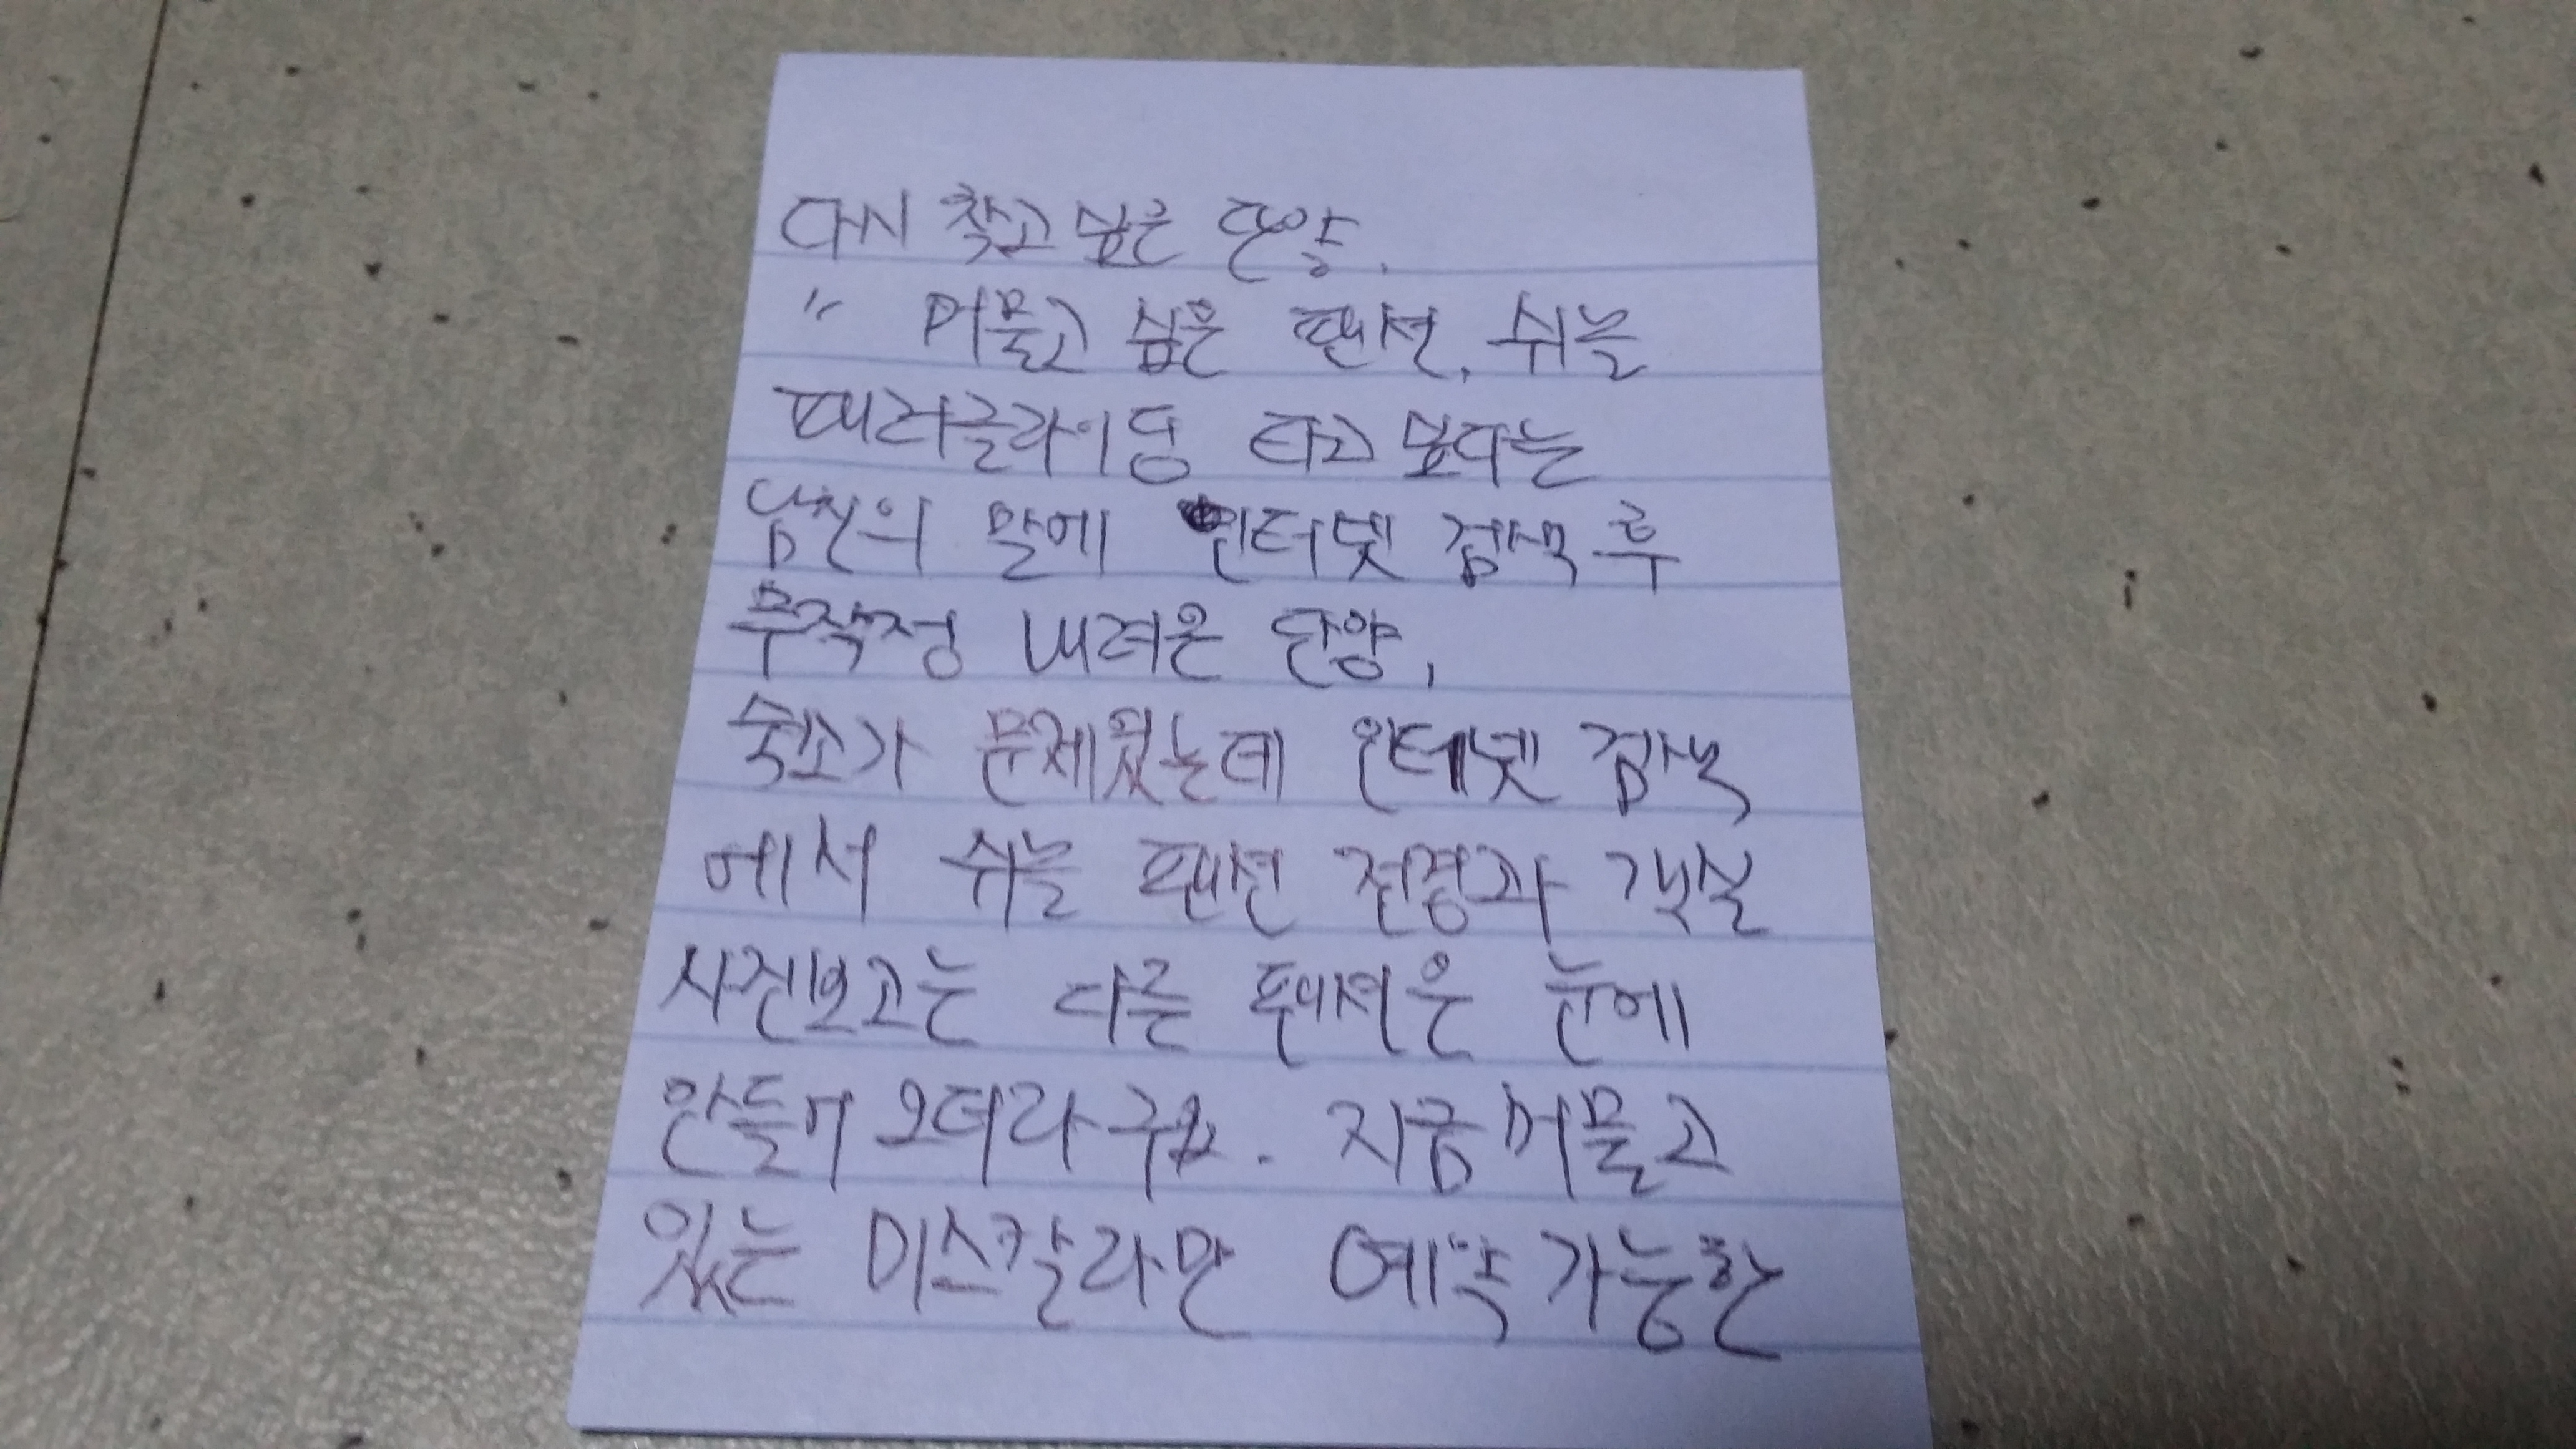 다시 찾고 싶은 단양.
〃 머물고 싶은 팬션, 쉬늘
패러글라이딩 타고 싶다는
남친의 말에 인터넷 검색 후
무작정 내려온 단양,
숙소가 문제였는데 인터넷 검색
에서 쉬늘 팬션 전경과 객실
사진보고는 다른 팬션은 눈에
안들어 오더라구요. 지금 머물고
있는 미스칼라만 예약 가능한